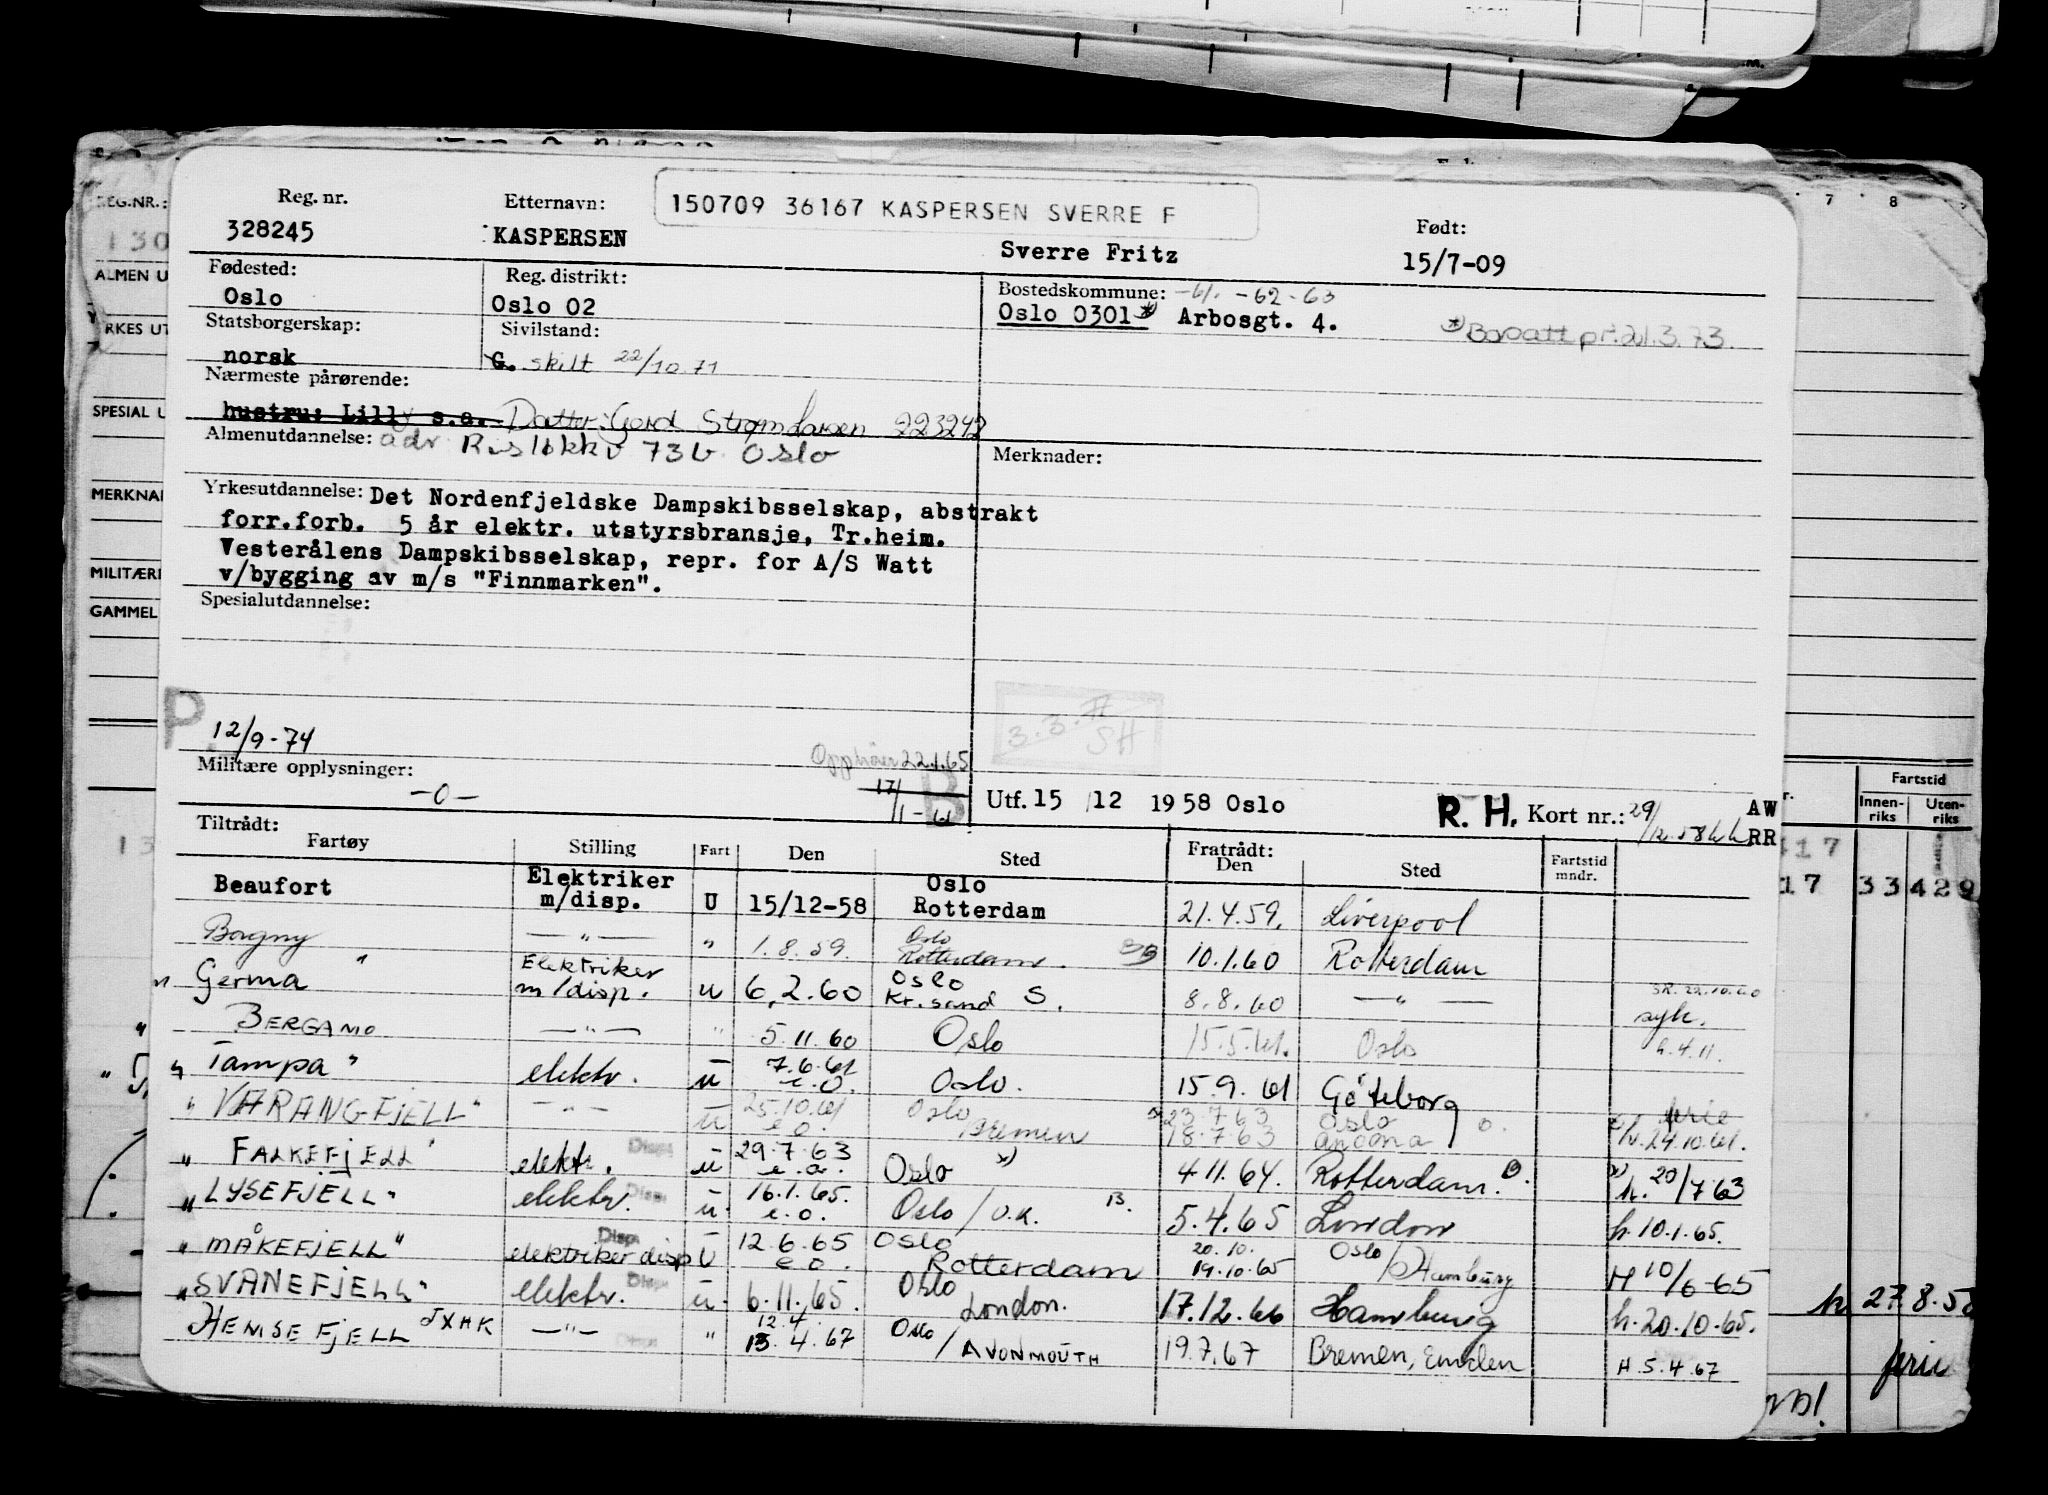 Reg. nr.
328245
Etternavn:
KASPERSEN
150709 36167 KASPERSEN SVERRE F
Sverre Fritz
Født:
15/7-09
Fødested:
Oslo
Reg. distrikt:
Oslo 02
Bostedskommune: -61. -62-63
Oslo 0301 *) Arbosgt. 4.
Statsborgerskap:
norsk
Sivilstand:
G. skilt 22/10.71
Nærmeste pårørende:
hustru: Lilly s.a. Datter: Gerd Strøm Larsen 223242
Almenutdannelse: adr. Risløkkv 73b Oslo
Merknader:
Yrkesutdannelse: Det Nordenfjeldske Dampskibsselskap, abstrakt
forr.forb. 5 år elektr. utstyrsbransje, Tr.heim.
Vesterålens Dampskibsselskap, repr. for A/S Watt
v/bygging av m/s "Finnmarken".
Spesialutdannelse:
P.
12/9-74
Opphører 22.1.65
17/1-61
B
3.3.71
SH
Militære opplysninger:
-0-
Utf. 15 12 1958 Oslo
R. H. Kort nr.: 29/12.58
AW
RR
Tiltrådt:
Fartøy Stilling Fart Den Sted Fratrådt: Den Sted Fartstid mndr.
Beaufort Elektriker m/disp. U 15/12-58 Oslo Rotterdam 21.4.59. Liverpool
Borgny " — " — " 1.8.59. Oslo Rotterdam. 10.1.60 Rotterdam
Germa Elektriker m/disp. u 6.2.60 Oslo Kr.sand S. 8.8.60 — " — SR. 22.10.60 syk.
BERGAMO — " — " 5.11.60 Oslo 15.5.61. Oslo h.4.11.
" Tampa " elektr. u 7.6.61 e.o. Oslo. 15.9.61 Göteborg ferie
" VARANGFJELL " — " — u 25.10.61 e.o. Oslo Bremen 23.7.63 18.7.63 Oslo Ancona h.24.10.61.
" FALKEFJELL " elektr. Disp. u 29.7.63 e.o. Oslo x) 4.11.64. Rotterdam. x) h. 20/7 63
" LYSEFJELL " elektr. Disp. u. 16.1.65. e.o. Oslo / U.K. 5.4.65 London h.10.1.65.
" MÅKEFJELL " elektriker disp U 12.6.65 e.o. Oslo Rotterdam 20.10. 19.10.65 Oslo / Hamburg H 10/6-65
" SVANEFJELL " elektr. Disp u. 6.11.65. Oslo London. 17.12.66 Hamburg h.20.10.65.
HEMSEFJELL JXHK — " — Disp " 12.4. 13.4.67 Oslo / AVONMOUTH 19.7.67 Bremen, Emden H.5.4.67
REG.NR.:
130
ALMEN U
RKES UT
SPESIAL U
MERKNA
MILITÆRE
GAMMEL
7 8
Fartstid
Innenriks
Utenriks
417
17 33 429
h 27.8.5
ferie